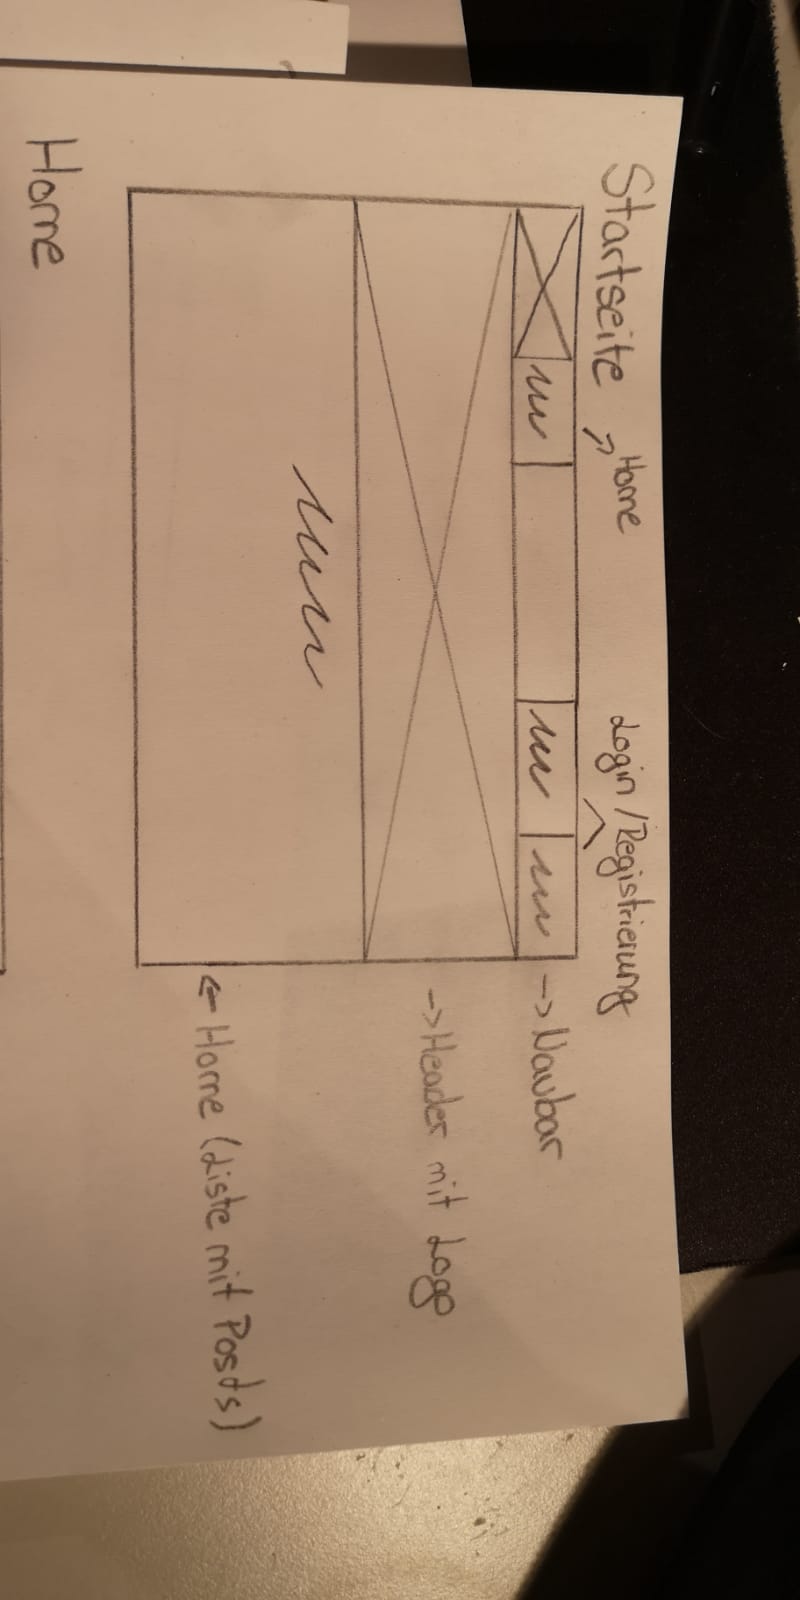 Startseite
Home
Login / Registrierung
-> Navbar
-> Header mit Logo
<- Home (Liste mit Posts)
Home